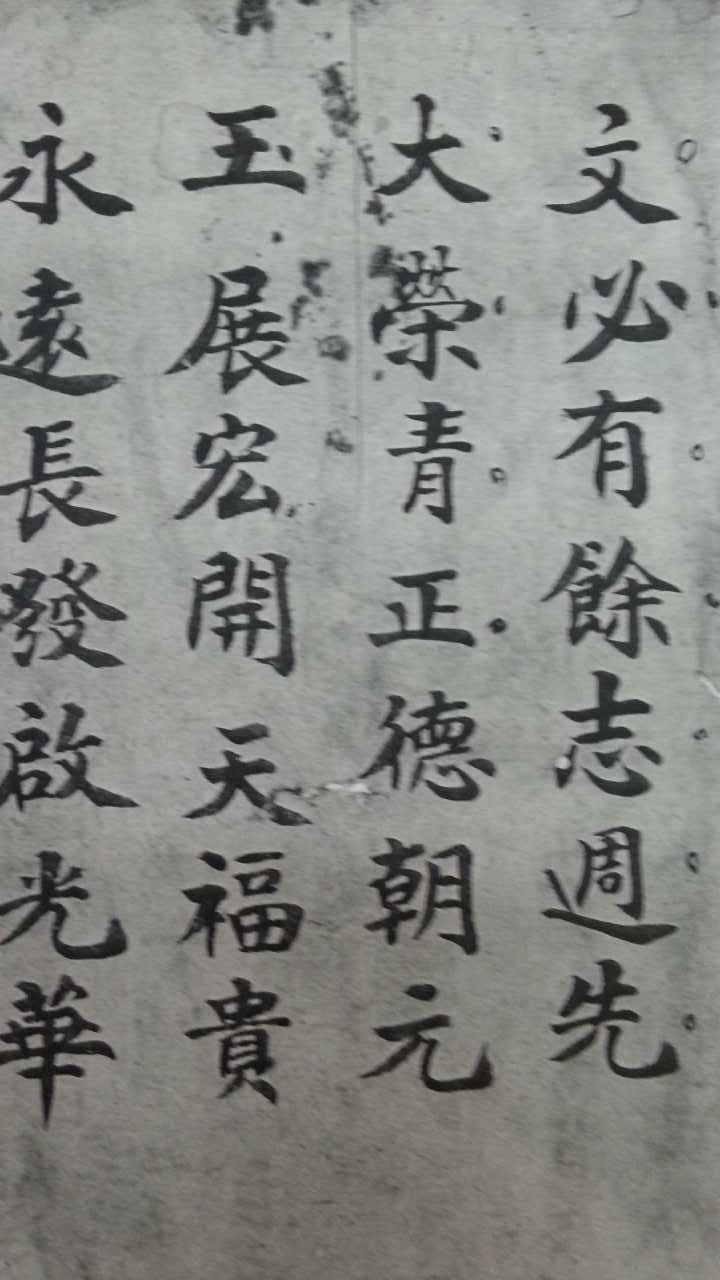 文必有餘志週先
大榮青正德朝元
玉展宏開天福貴
永遠長發啟光華